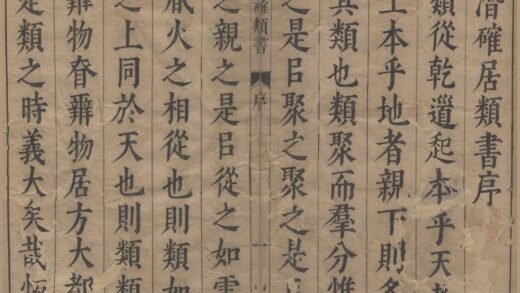 潛確居類書序
類從乾道起本乎天
上本乎地者親下則各
其類也類聚而羣分惟
之是㠯聚之聚之是
確類書 序 一
之親之是㠯從之如雲
火之相從也則類如
之上同於天也則類
辨物眘辨物居方大都
是類之時義大矣哉